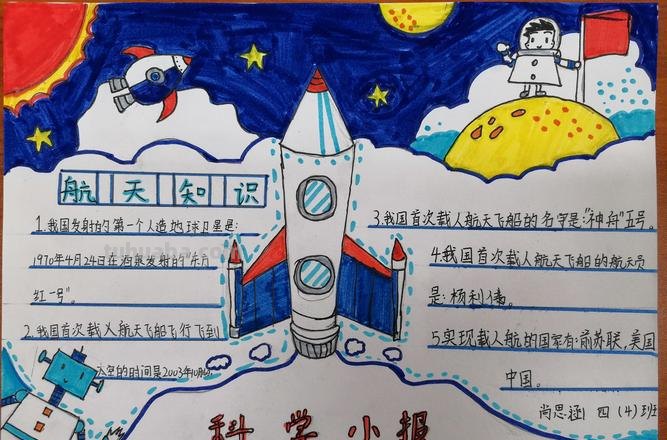 航天知识
1.我国发射的第一个人造地球卫星是:
1970年4月24日在酒泉发射的"东方
红一号"。
2.我国首次载人航天飞船飞行飞到
太空的时间是2003年10月
3.我国首次载人航天飞船的名字是:"神舟"五号。
4.我国首次载人航天飞船的航天员
是:杨利伟。
5.实现载人航的国家有:前苏联,美国
中国。
尚思涵 四(4)班
科学小报
tuhuaba.com